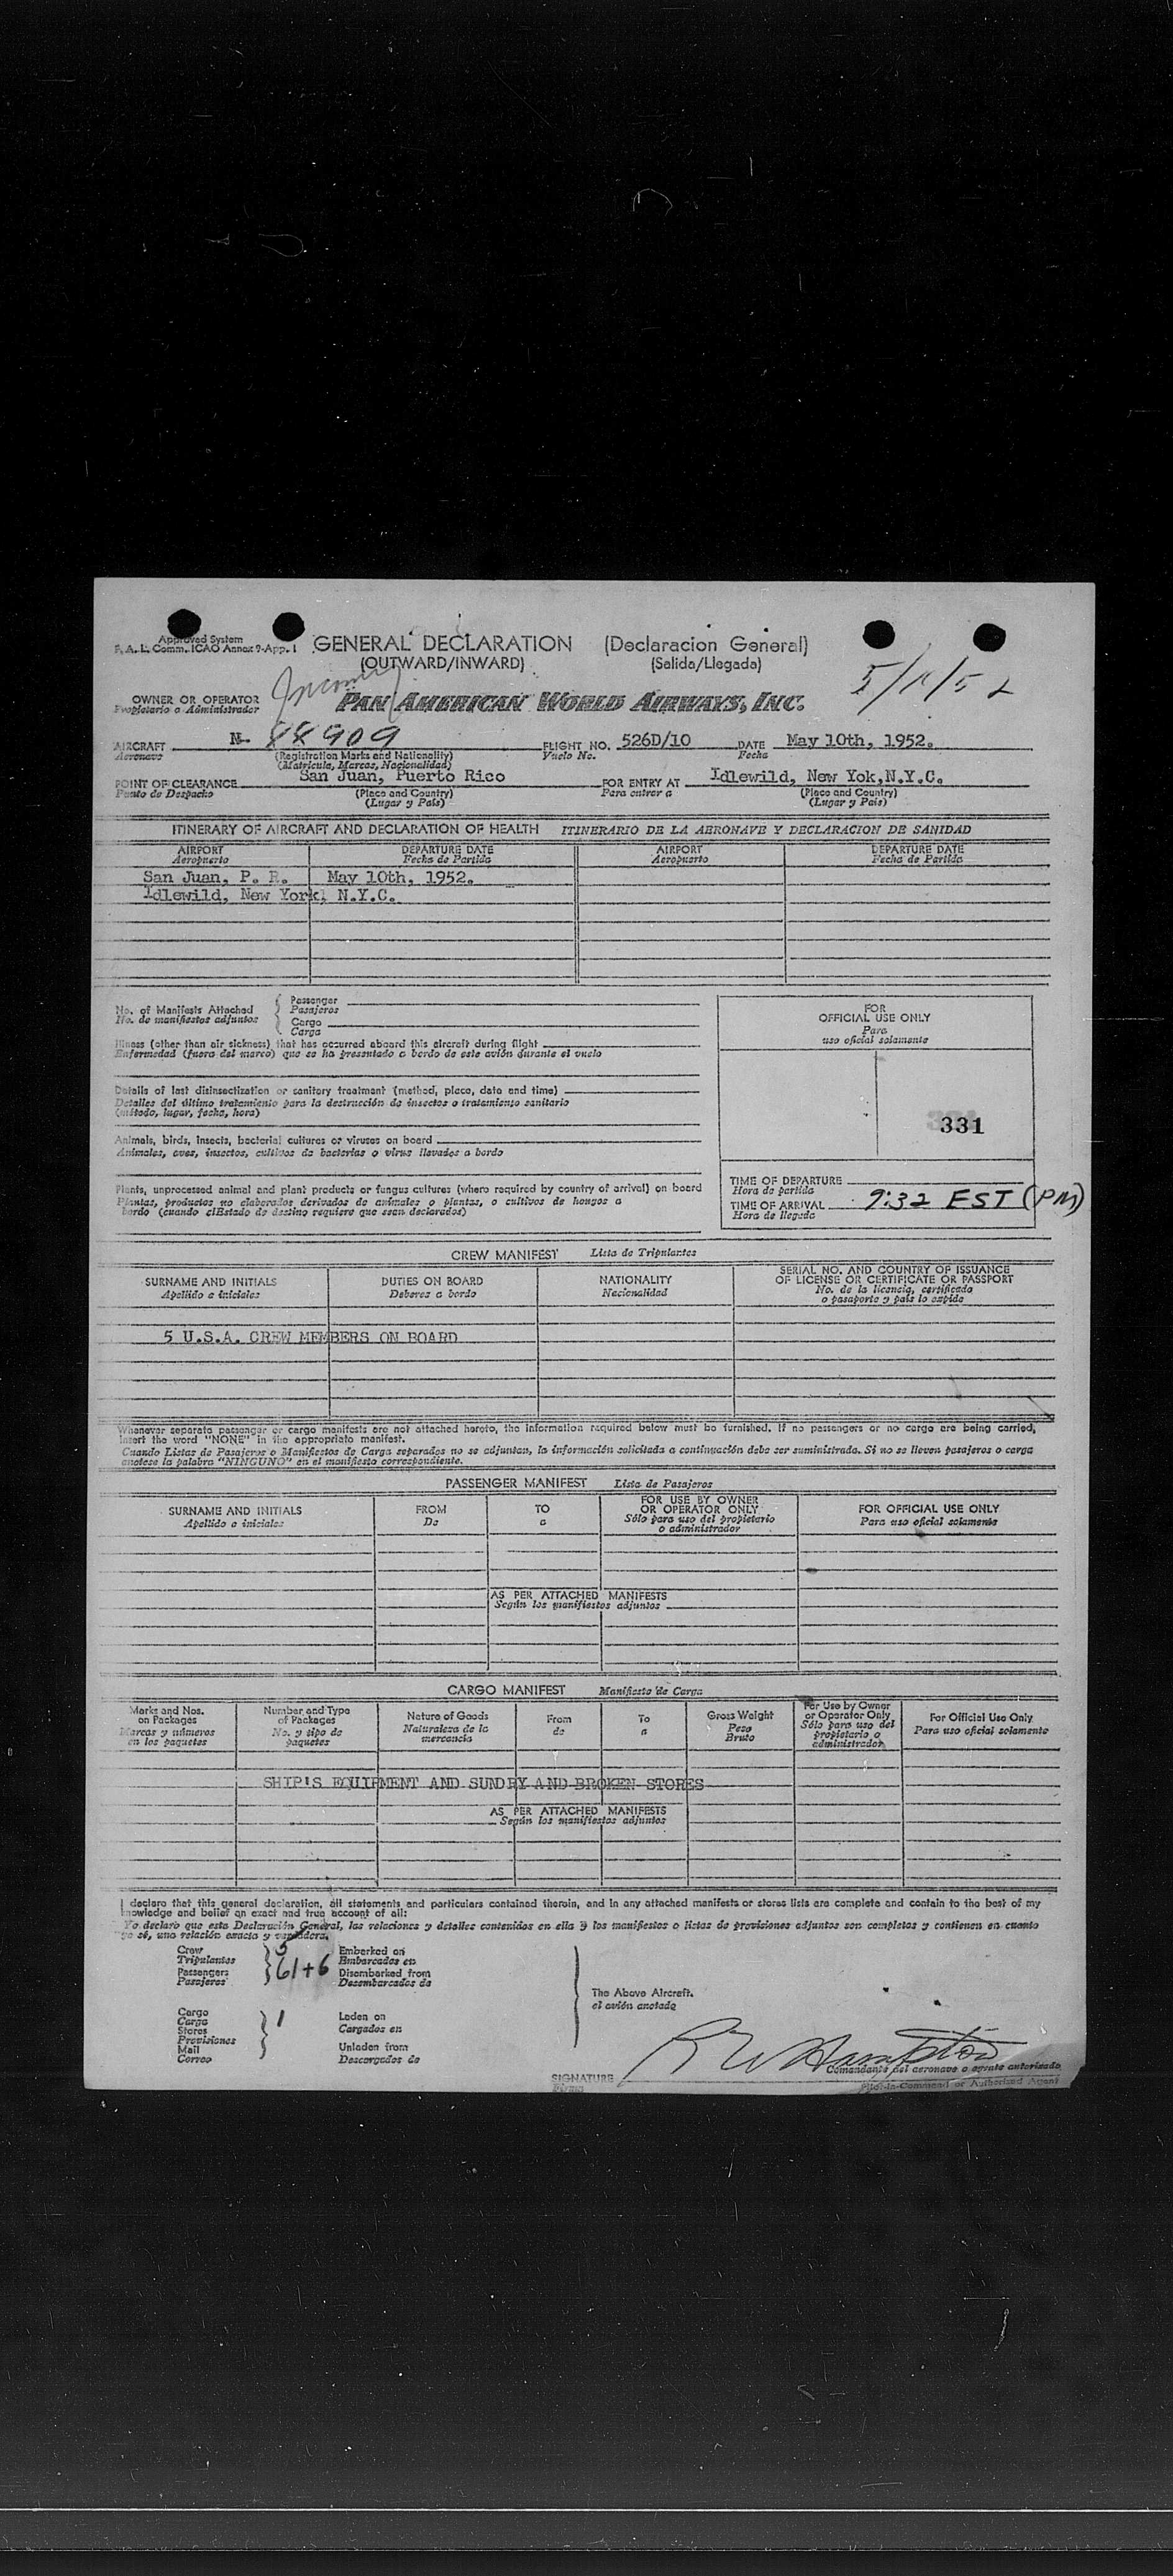 Approved System
F. A. L. Comm. ICAO Annex 9-App. 1
GENERAL DECLARATION (Declaracion General)
(OUTWARD/INWARD) (Salida/Llegada)
OWNER OR OPERATOR
Propietario o Administrador
PAN AMERICAN WORLD AIRWAYS, INC.
AIRCRAFT N- 88909 FLIGHT NO. 526D/10 DATE May 10th, 1952.
Aeronave (Registration Marks and Nationality) Vuelo No. Fecha
(Matrícula, Marcas, Nacionalidad)
POINT OF CLEARANCE San Juan, Puerto Rico FOR ENTRY AT Idlewild, New Yok,N.Y.C.
Punto de Despacho (Place and Country) Para entrar a (Place and Country)
(Lugar y País) (Lugar y País)
ITINERARY OF AIRCRAFT AND DECLARATION OF HEALTH ITINERARIO DE LA AERONAVE Y DECLARACION DE SANIDAD
AIRPORT DEPARTURE DATE AIRPORT DEPARTURE DATE
Aeropuerto Fecha de Partida Aeropuerto Fecha de Partida
San Juan, P. R. May 10th, 1952.
Idlewild, New York, N.Y.C.
No. of Manifests Attached
No. de manifiestos adjuntos
Passenger
Pasajeros
Cargo
Carga
Illness (other than air sickness) that has occurred aboard this aircraft during flight
Enfermedad (fuera del mareo) que se ha presentado a bordo de este avión durante el vuelo
Details of last disinsectization or sanitary treatment (method, place, date and time)
Detalles del último tratamiento para la destrucción de insectos o tratamiento sanitario
(método, lugar, fecha, hora)
Animals, birds, insects, bacterial cultures or viruses on board
Animales, aves, insectos, cultivos de bacterias o virus llevados a bordo
Plants, unprocessed animal and plant products or fungus cultures (where required by country of arrival) on board
Plantas, productos no elaborados derivados de animales o plantas, o cultivos de hongos a
bordo (cuando el Estado de destino requiere que sean declarados)
FOR
OFFICIAL USE ONLY
Para
uso oficial solamente
331
TIME OF DEPARTURE
Hora de partida
TIME OF ARRIVAL 9:32 EST (PM)
Hora de llegada
CREW MANIFEST Lista de Tripulantes
SURNAME AND INITIALS DUTIES ON BOARD NATIONALITY SERIAL NO. AND COUNTRY OF ISSUANCE
OF LICENSE OR CERTIFICATE OR PASSPORT
Apellido e iniciales Deberes a bordo Nacionalidad No. de la licencia, certificado
o pasaporte y país lo expide
5 U.S.A. CREW MEMBERS ON BOARD
Whenever separate passenger or cargo manifests are not attached hereto, the information required below must be furnished. If no passengers or no cargo are being carried,
insert the word "NONE" in the appropriate manifest.
Cuando Listas de Pasajeros o Manifiestos de Carga separados no se adjuntan, la información solicitada a continuación debe ser suministrada. Si no se lleven pasajeros o carga
anotese la palabra "NINGUNO" en el manifiesto correspondiente.
PASSENGER MANIFEST Lista de Pasajeros
SURNAME AND INITIALS FROM TO FOR USE BY OWNER
OR OPERATOR ONLY FOR OFFICIAL USE ONLY
Apellido e iniciales De a Sólo para uso del propietario
o administrador Para uso oficial solamente
AS PER ATTACHED MANIFESTS
Según los manifiestos adjuntos
CARGO MANIFEST Manifiesto de Carga
Marks and Nos.
on Packages
Marcas y números
en los paquetes
Number and Type
of Packages
No. y tipo de
paquetes
Nature of Goods
Naturaleza de la
mercancía
From
de
To
a
Gross Weight
Peso
Bruto
For Use by Owner
or Operator Only
Sólo para uso del
propietario o
administrador
For Official Use Only
Para uso oficial solamente
SHIP'S EQUIPMENT AND SUNDRY AND BROKEN STORES
AS PER ATTACHED MANIFESTS
Según los manifiestos adjuntos
I declare that this general declaration, all statements and particulars contained therein, and in any attached manifests or stores lists are complete and contain to the best of my
knowledge and belief an exact and true account of all:
Yo declaro que esta Declaración General, las relaciones y detalles contenidos en ella y los manifiestos o listas de provisiones adjuntos son completos y contienen en cuanto
yo sé, una relación exacta y verdadera.
Crew 5 Embarked on
Tripulantes Embarcados en
Passengers 61+6 Disembarked from
Pasajeros Desembarcados de
Cargo
Carga 1 Laden on
Stores Cargados en
Provisiones
Mail Unladen from
Correo Descargados de
The Above Aircraft.
el avión anotado
SIGNATURE R W Hampton
Firma
Comandante del aeronave o agente autorizado
Pilot-in-Command or Authorized Agent